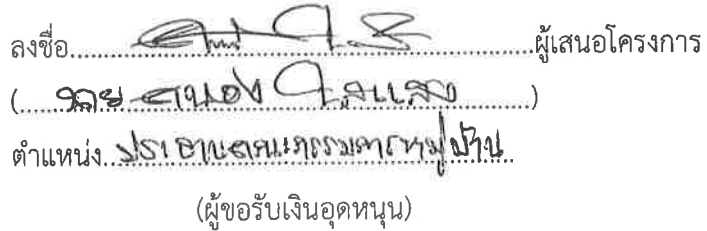 ลงชื่อ....................ผู้เสนอโครงการ
(....นาย สนอง ใสแสง....)
ตำแหน่ง..ประธานคณะกรรมการหมู่บ้าน..
(ผู้ขอรับเงินอุดหนุน)